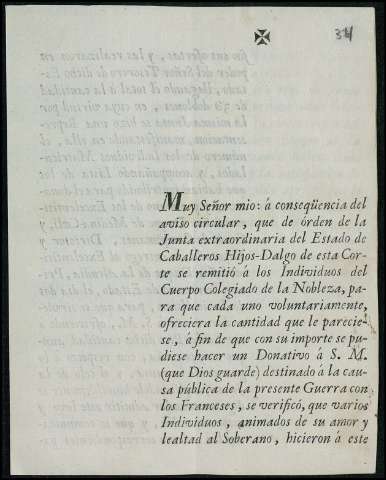 34
Muy Señor mio: á conseqüencia del
aviso circular, que de órden de la
Junta extraordinaria del Estado de
Caballeros Hijos-Dalgo de esta Cor-
te se remitió á los Individuos del
Cuerpo Colegiado de la Nobleza, pa-
ra que cada uno voluntariamente,
ofreciera la cantidad que le parecie-
se, á fin de que con su importe se pu-
diese hacer un Donativo á S. M.
(que Dios guarde) destinado á la cau-
sa pública de la presente Guerra con
los Franceses, se verificó, que varios
Individuos, animados de su amor y
lealtad al Soberano, hicieron á este